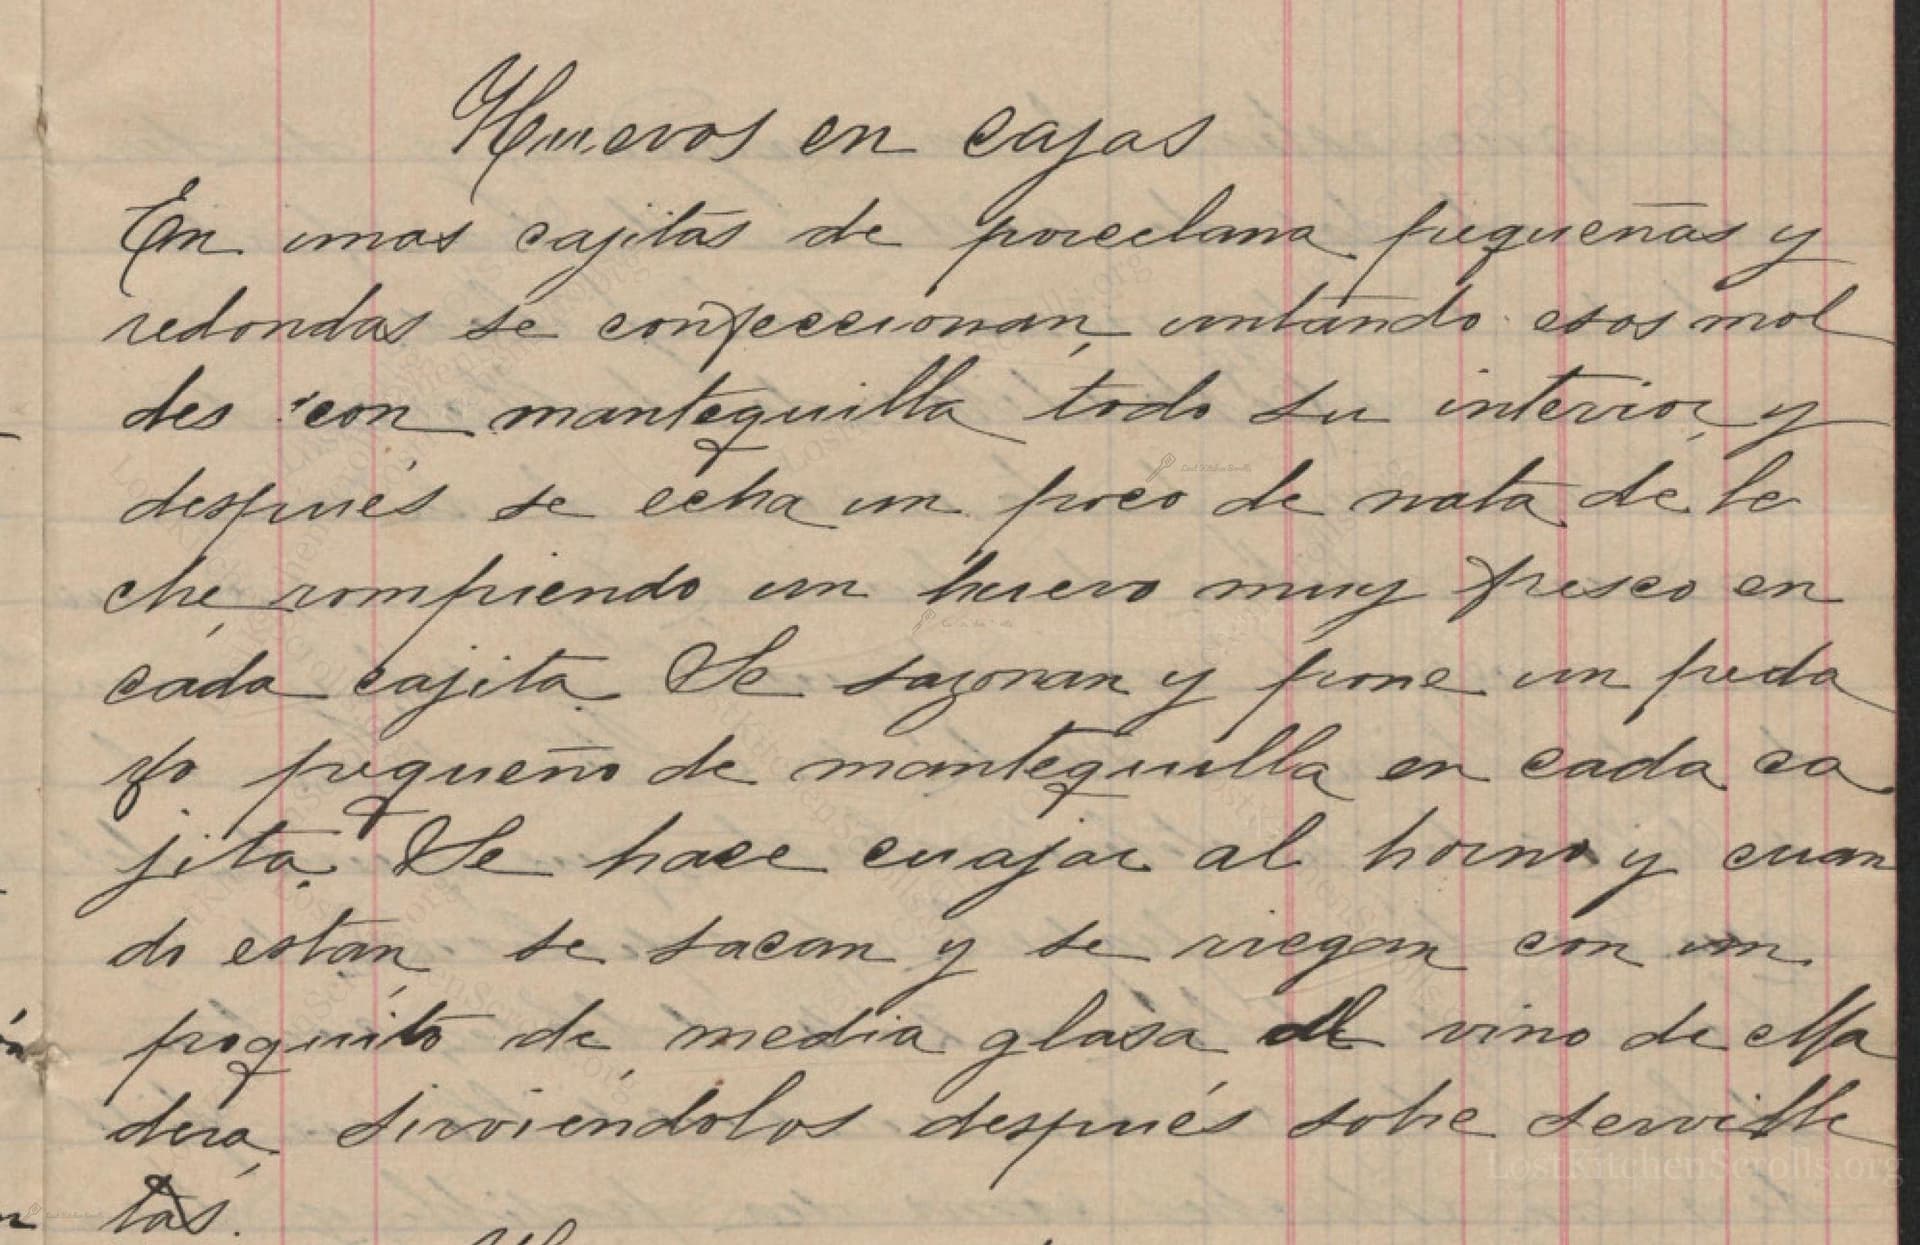 Huevos en cajas
En unas cajitas de porcelana pequeñas y
redondas se confeccionan, untando esos mol
des con mantequilla todo su interior, y
después se echa un poco de nata de le
che, rompiendo un huevo muy fresco en
cada cajita. Se sazonan y pone un peda
zo pequeño de mantequilla en cada ca
jita. Se hace cuajar al horno y cuan
do estan, se sacan y se riegan con un
poquito de media glasa al vino de Ma
dera, sirviéndolos después sobre serville
tas.
LostKitchenScrolls.org